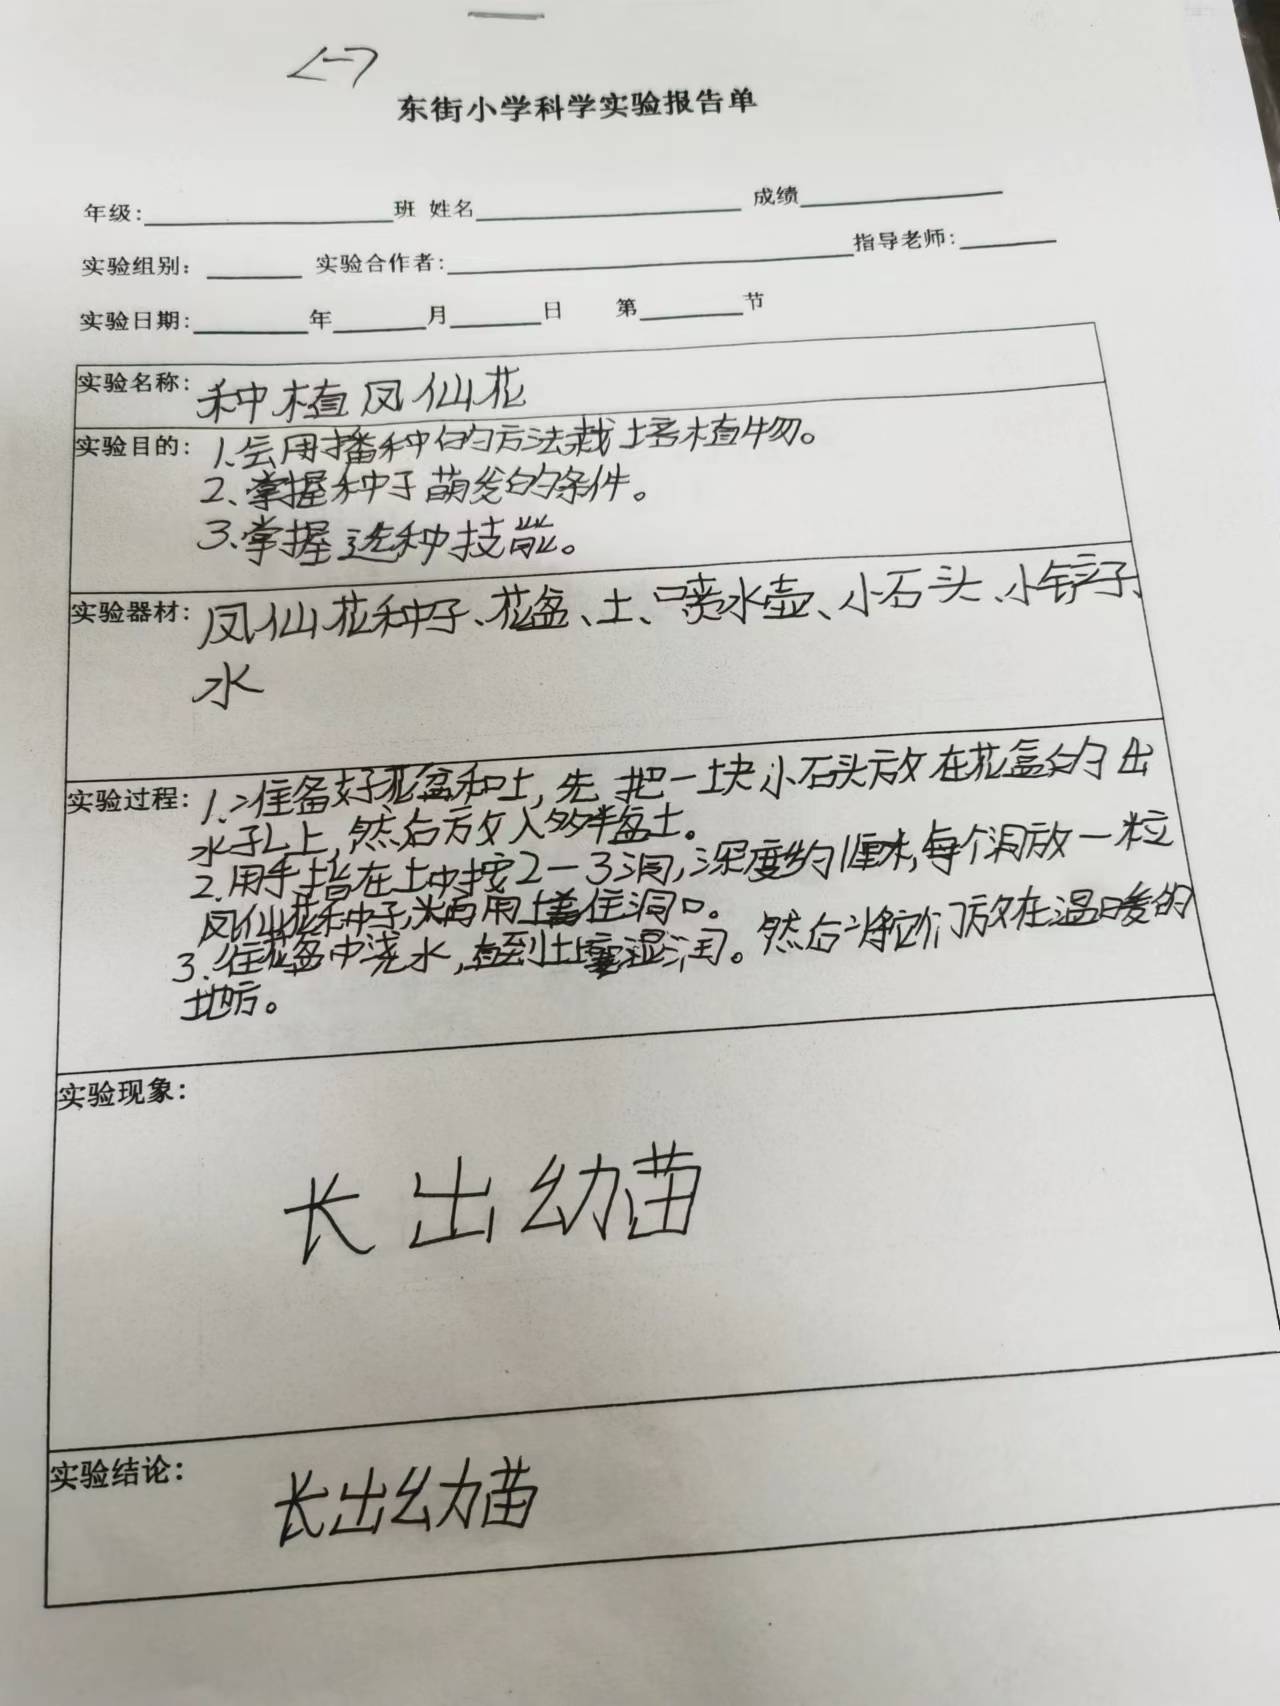 <一>
东街小学科学实验报告单
年级：班 姓名 成绩
实验组别： 实验合作者： 指导老师：
实验日期： 年 月 日 第 节
实验名称： 种植凤仙花
实验目的： 1、会用播种的方法栽培植物。
2、掌握种子萌发的条件。
3、掌握选种技能。
实验器材： 凤仙花种子、花盆、土、喷水壶、小石头、小铲子、
水
实验过程： 1、准备好花盆和土，先把一块小石头放在花盆的出
水孔上，然后放入多半盆土。
2、用手指在土中按2-3洞，深度约1厘米，每个洞放一粒
凤仙花种子，然后用土盖住洞口。
3、往花盆中浇水，直到土壤湿润。然后将它们放在温暖的
地方。
实验现象：
长出幼苗
实验结论： 长出幼苗